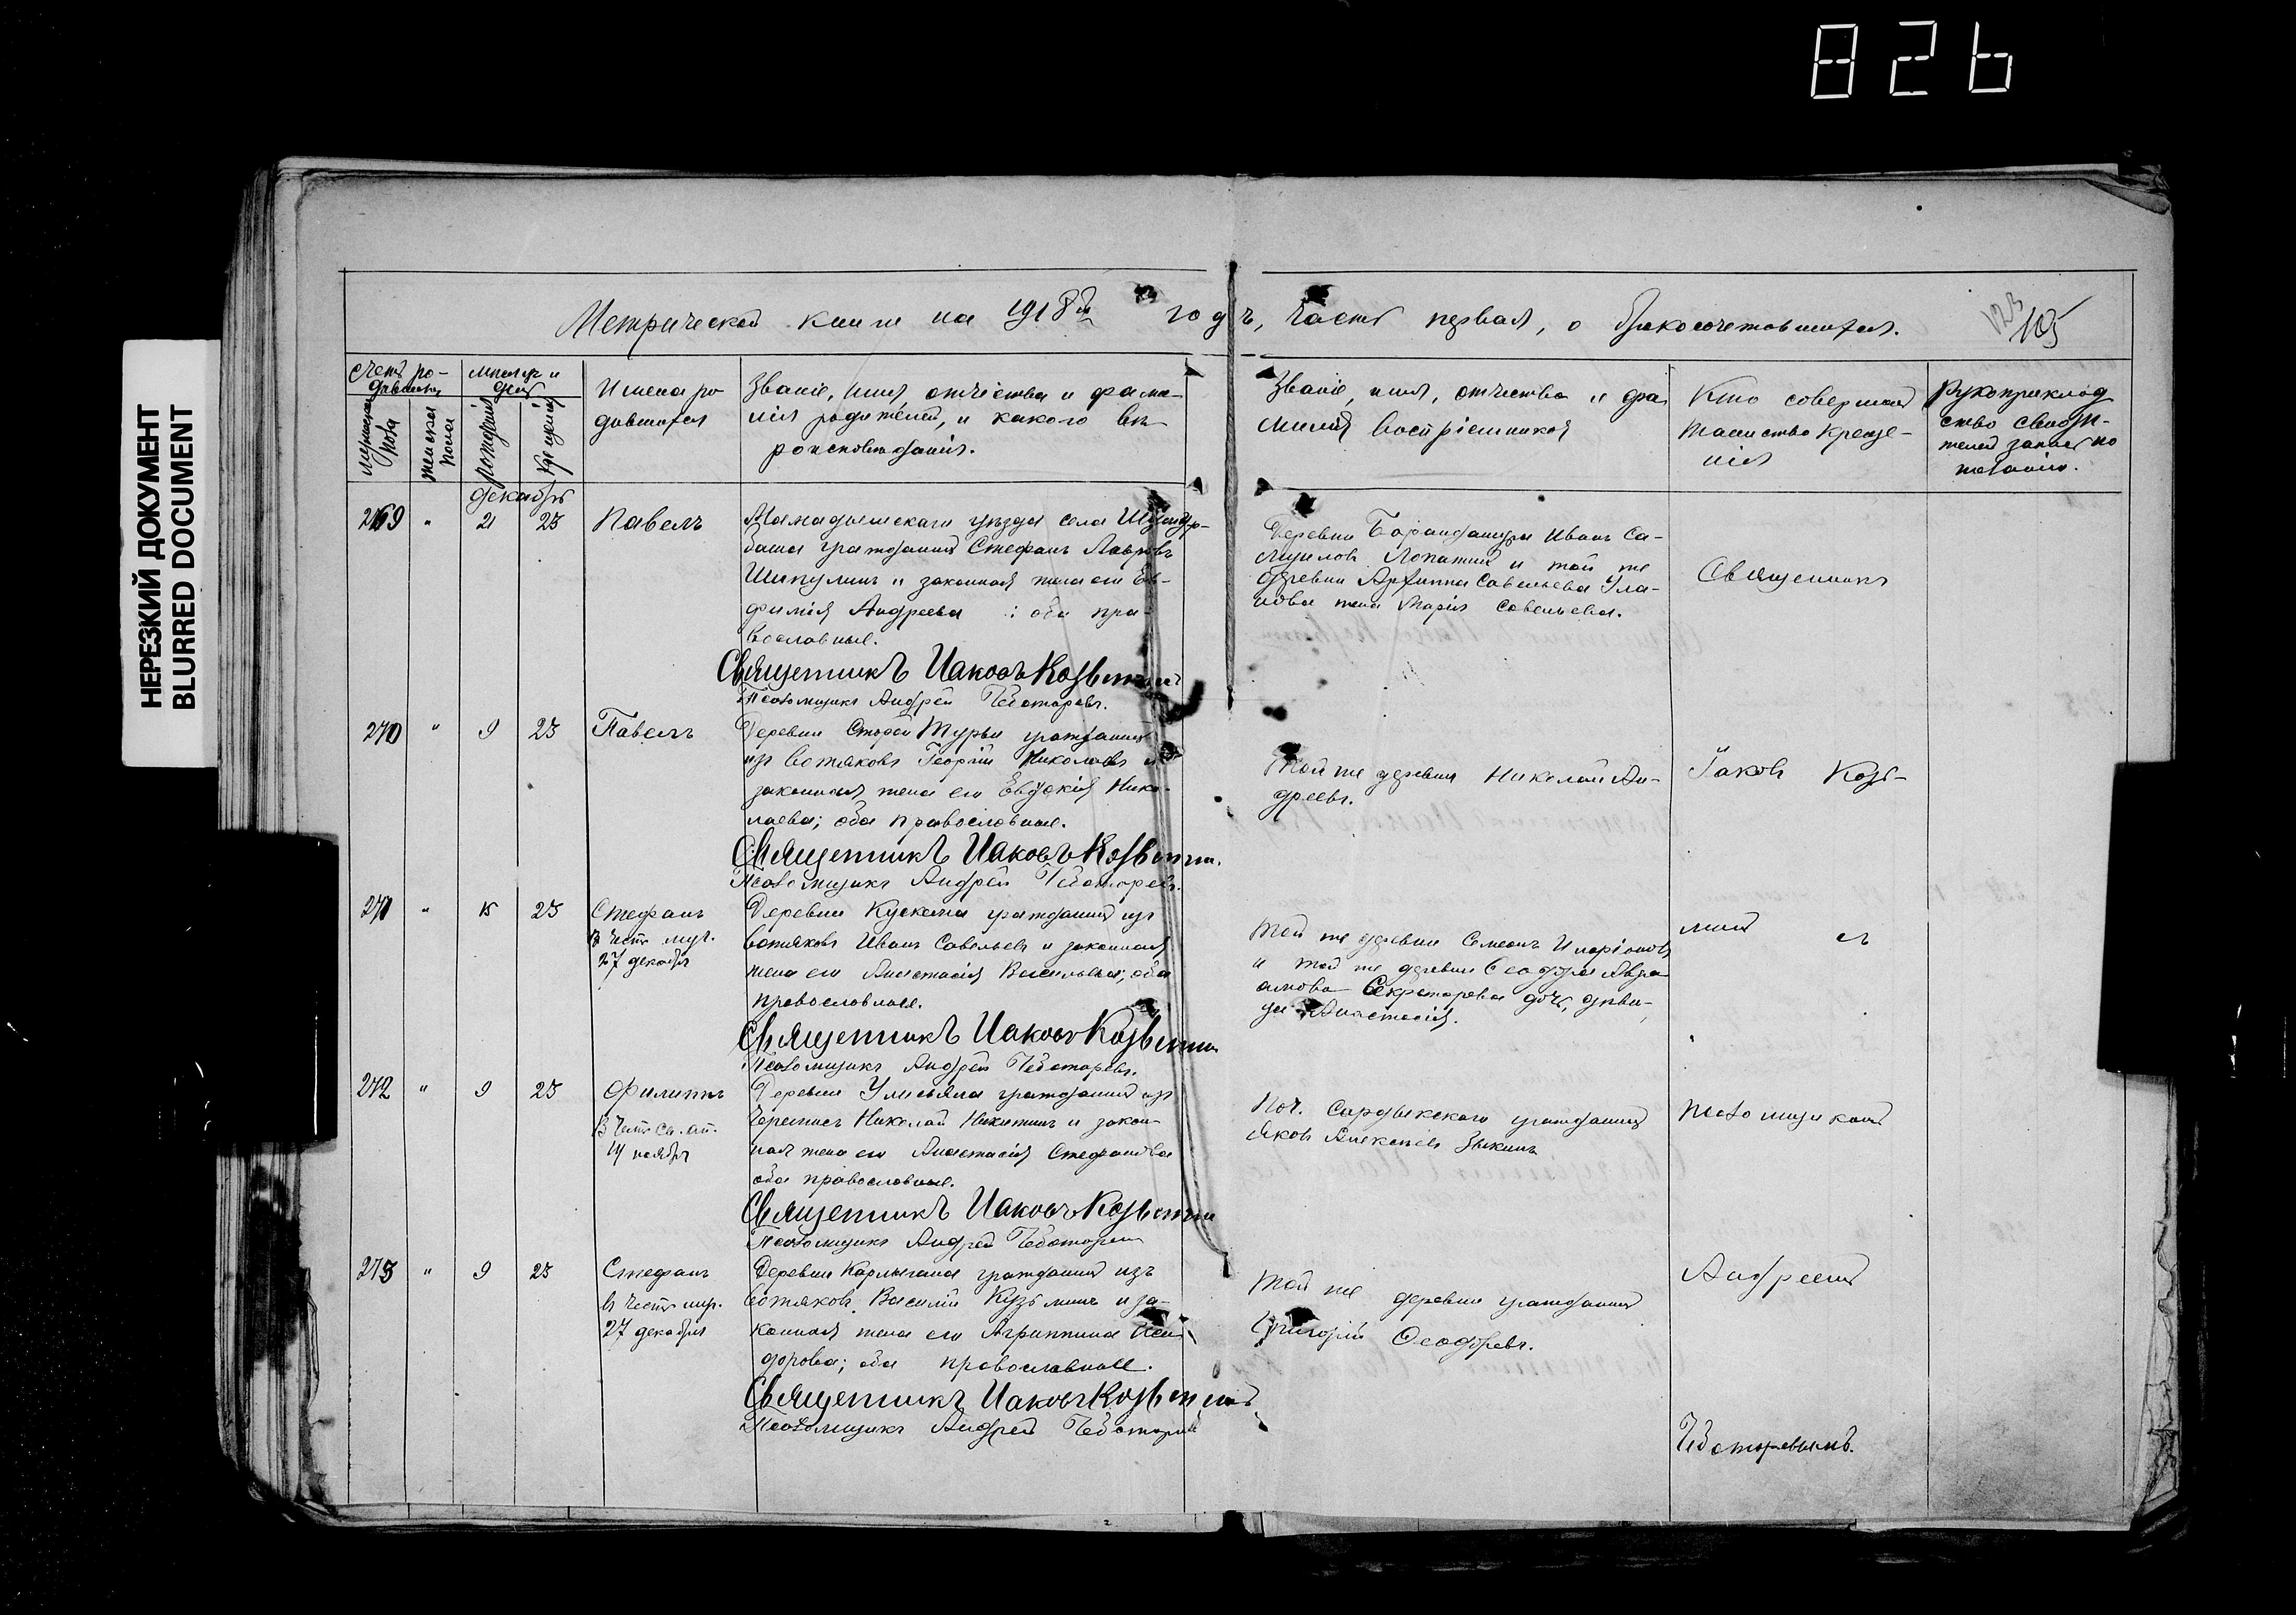 826
НЕРЕЗКИЙ ДОКУМЕНТ
BLURRED DOCUMENT
Метрической книги на 1918й годъ, Часть первая, о бракосочетавшихся.
123
105
Счетъ ро-
дившихся
мужеска
пола
женска
пола
Мѣсяцъ и
день
рожденія
крещенія
Имена ро
дившихся
Званіе, имя, отчество и фами-
лія родителей, и какого вѣ-
роисповѣданія.
Званіе, имя, отчество и фа
милія воспріемниковъ
Кто совершалъ
таинство креще-
нія
Рукоприклад
ство свидѣ-
телей записи по
желанію.
декабрь
269 " 21 23 Павелъ
Мамадышскаго уѣзда села
баша гражданинъ Стефанъ Лавровъ
Шипулинъ и законная жена его Ев-
фимія Андреева : оба пра-
вославные.
Священникъ Иаковъ Козьминъ
Псаломщикъ Андрей Чеботаревъ.
Деревни Иванъ Са-
муиловъ Лопатинъ и той же
деревни Савельева Ула-
нова жена Марія Савельева.
Священникъ
270 " 9 23 Павелъ
Деревни Старой Турьи гражданинъ
изъ вотяковъ Георгій Николаевъ и
законная жена его Евдокія Нико-
лаева; оба православные.
Священникъ Иаковъ Козьминъ.
Псаломщикъ Андрей Чеботаревъ.
Той же деревни Николай Ан-
дреевъ.
Іаковъ Козь-
271 " 15 23 Стефанъ
В честь муч.
27 декабря
Деревни Кускема гражданинъ изъ
вотяковъ Иванъ Савельевъ и законная
жена его Анастасія Васильева; оба
православные.
Священникъ Иаковъ Козьминъ
Псаломщикъ Андрей Чеботаревъ.
Той же деревни Симеонъ Иларіоновъ
и той же деревни Авра-
амова Секретарева дочь, дѣви-
ца Анастасія.
минъ съ
272 " 9 23 Филиппъ
В честь Св. ап.
14 ноября
Деревни гражданинъ изъ
черемисъ Николай Никитинъ и закон-
ная жена его Анастасія Стефанова
оба православные.
Священникъ Иаковъ Козьминъ
Псаломщикъ Андрей Чеботаревъ
Поч. Сардыкского гражданинъ
Яковъ Алексѣевъ Зыкинъ
псаломщикомъ
273 " 9 23 Стефанъ
въ честь муч.
27 декабря
Деревни Карлыгана гражданинъ изъ
вотяковъ Василій Кузьминъ и за-
конная жена его Агриппина Иси-
дорова; оба православные.
Священникъ Иаковъ Козьминъ
Псаломщикъ Андрей Чеботаревъ
Той же деревни гражданинъ
Григорій Ѳеодоровъ.
Андреемъ
Чеботаревымъ.